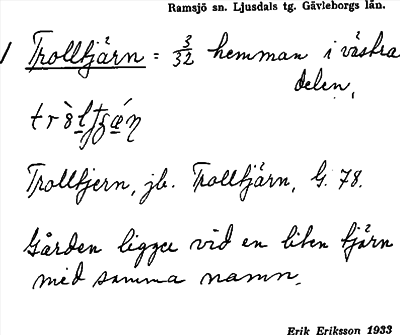 Ramsjö sn. Ljusdals tg. Gävleborgs län.
1 Trolltjärn = 3/32 hemman i västra
delen.
Trolltjern, jb. Trolltjärn, G. 78.
Gården ligger vid en liten tjärn
med samma namn.
Erik Eriksson 1933